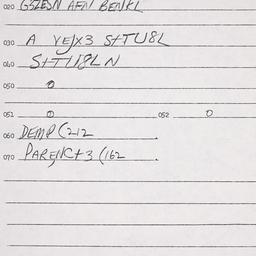 020 GSZESN AFN BENKL
030 A YEJX3 S+TU8L
040 S+TU8LN
050 0
051 0 052 0
060 DEMP(212
070 PARENC+3(162